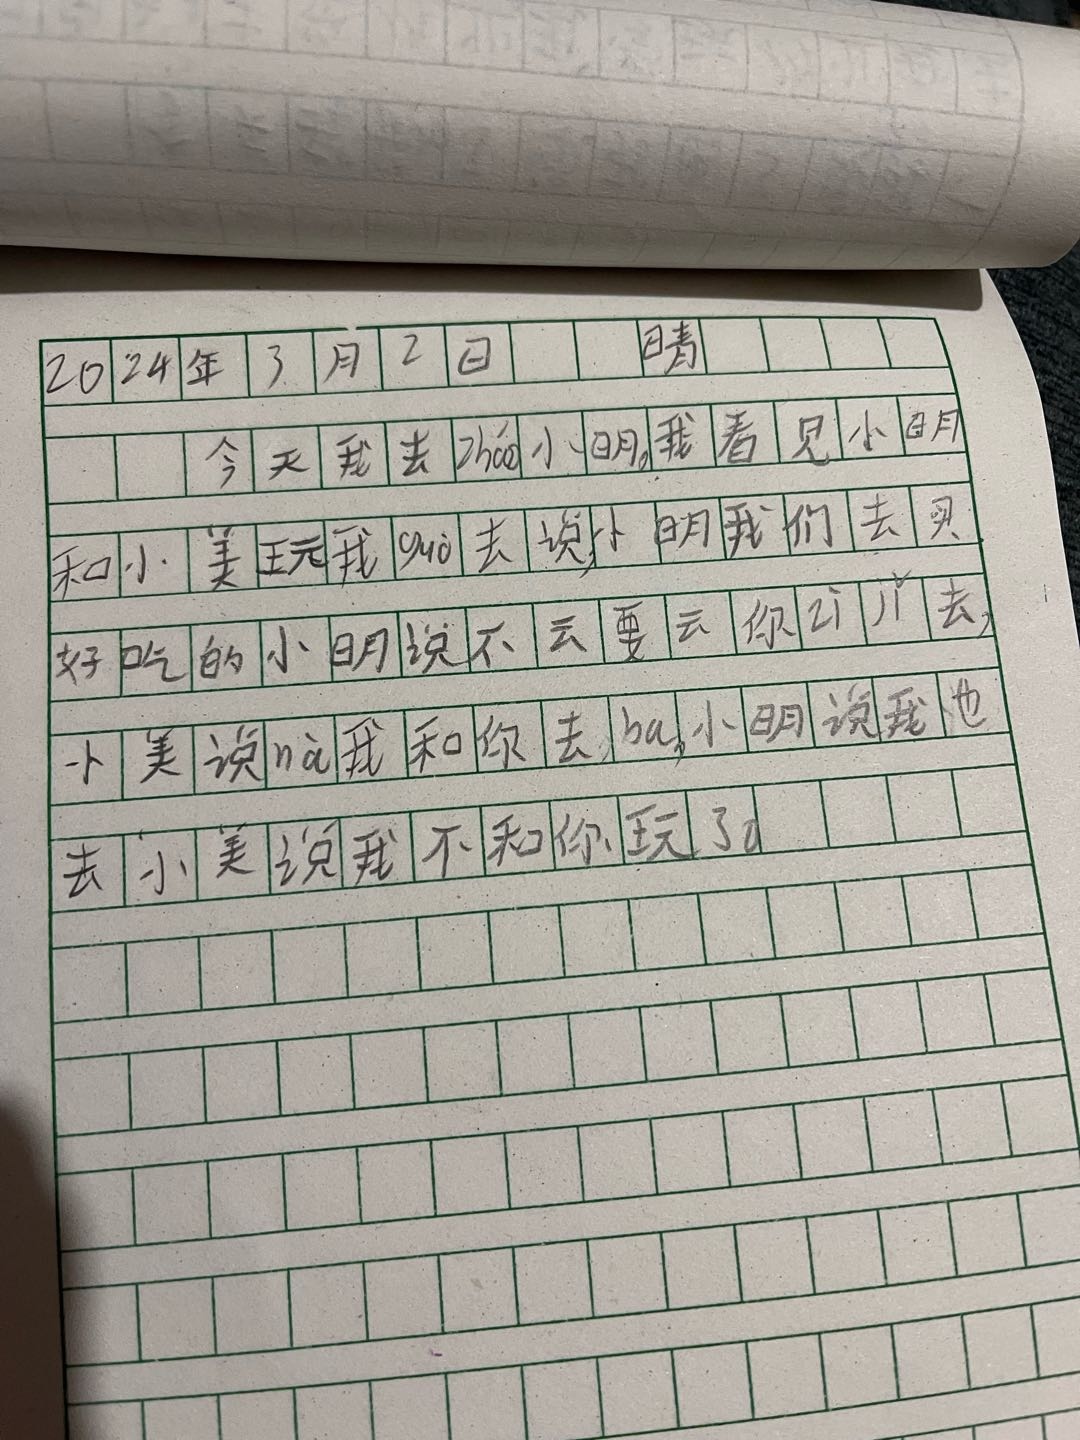 2024年3月2日 晴
今天我去zhǎo小明。我看见小明
和小美玩我guò去说,小明我们去买
好吃的小明说不云要云你zìjǐ去,
小美说nà我和你去,ba,小明说我也
去小美说我不和你玩了。